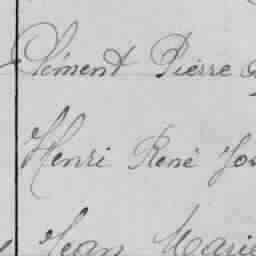 Clément Pierre
Henri René
Jean Marie